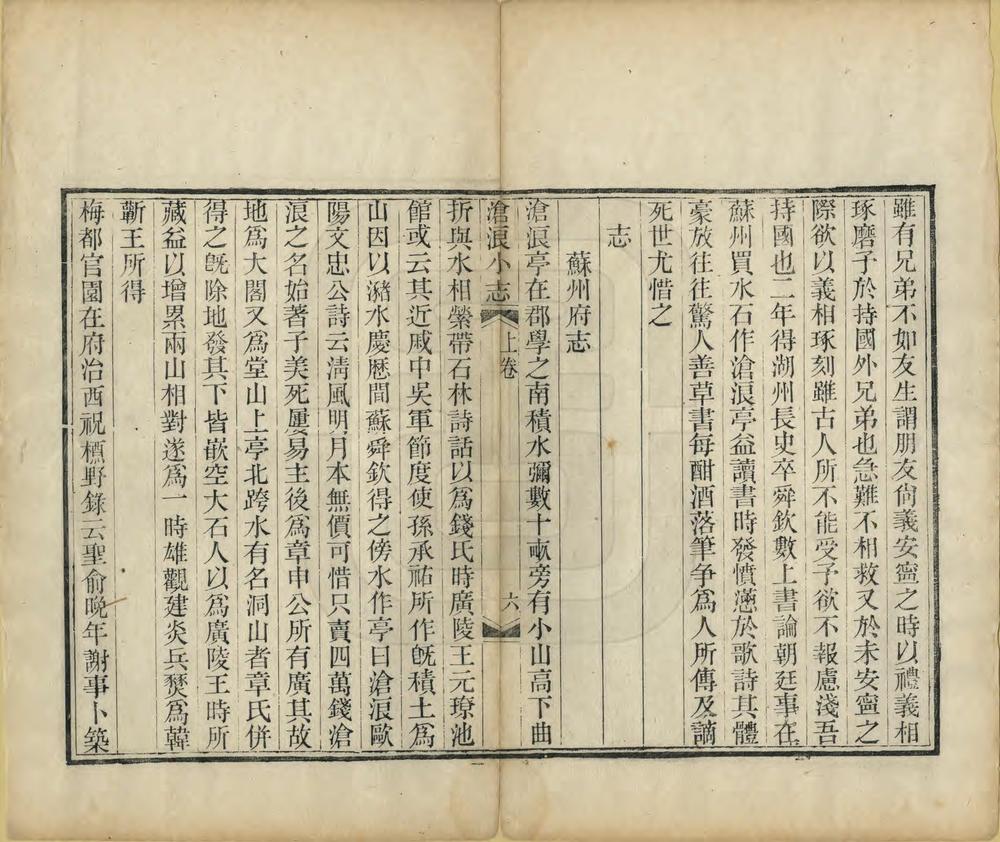 雖有兄弟不如友生謂朋友尙義安寍之時以禮義相
琢磨子於持國外兄弟也急難不相救又於未安寍之
際欲以義相琢刻雖古人所不能受予欲不報慮淺吾
持國也二年得湖州長史卒舜欽數上書論朝廷事在
蘇州買水石作滄浪亭益讀書時發憤懣於歌詩其體
豪放往往驚人善草書每酣酒落筆爭爲人所傳及謫
死世尤惜之
志
蘇州府志
滄浪亭在郡學之南積水彌數十畝旁有小山高下曲
滄浪小志
上卷
六
折與水相縈帶石林詩話以爲錢氏時廣陵王元璙池
館或云其近戚中吳軍節度使孫承祐所作旣積土爲
山因以瀦水慶厯間蘇舜欽得之傍水作亭曰滄浪歐
陽文忠公詩云淸風明月本無價可惜只賣四萬錢滄
浪之名始著子美死屢易主後爲章申公所有廣其故
地爲大閣又爲堂山上亭北跨水有名洞山者章氏併
得之旣除地發其下皆嵌空大石人以爲廣陵王時所
藏益以增累兩山相對遂爲一時雄觀建炎兵燹爲韓
蘄王所得
梅都官園在府治西祝櫄野錄云聖俞晚年謝事卜築